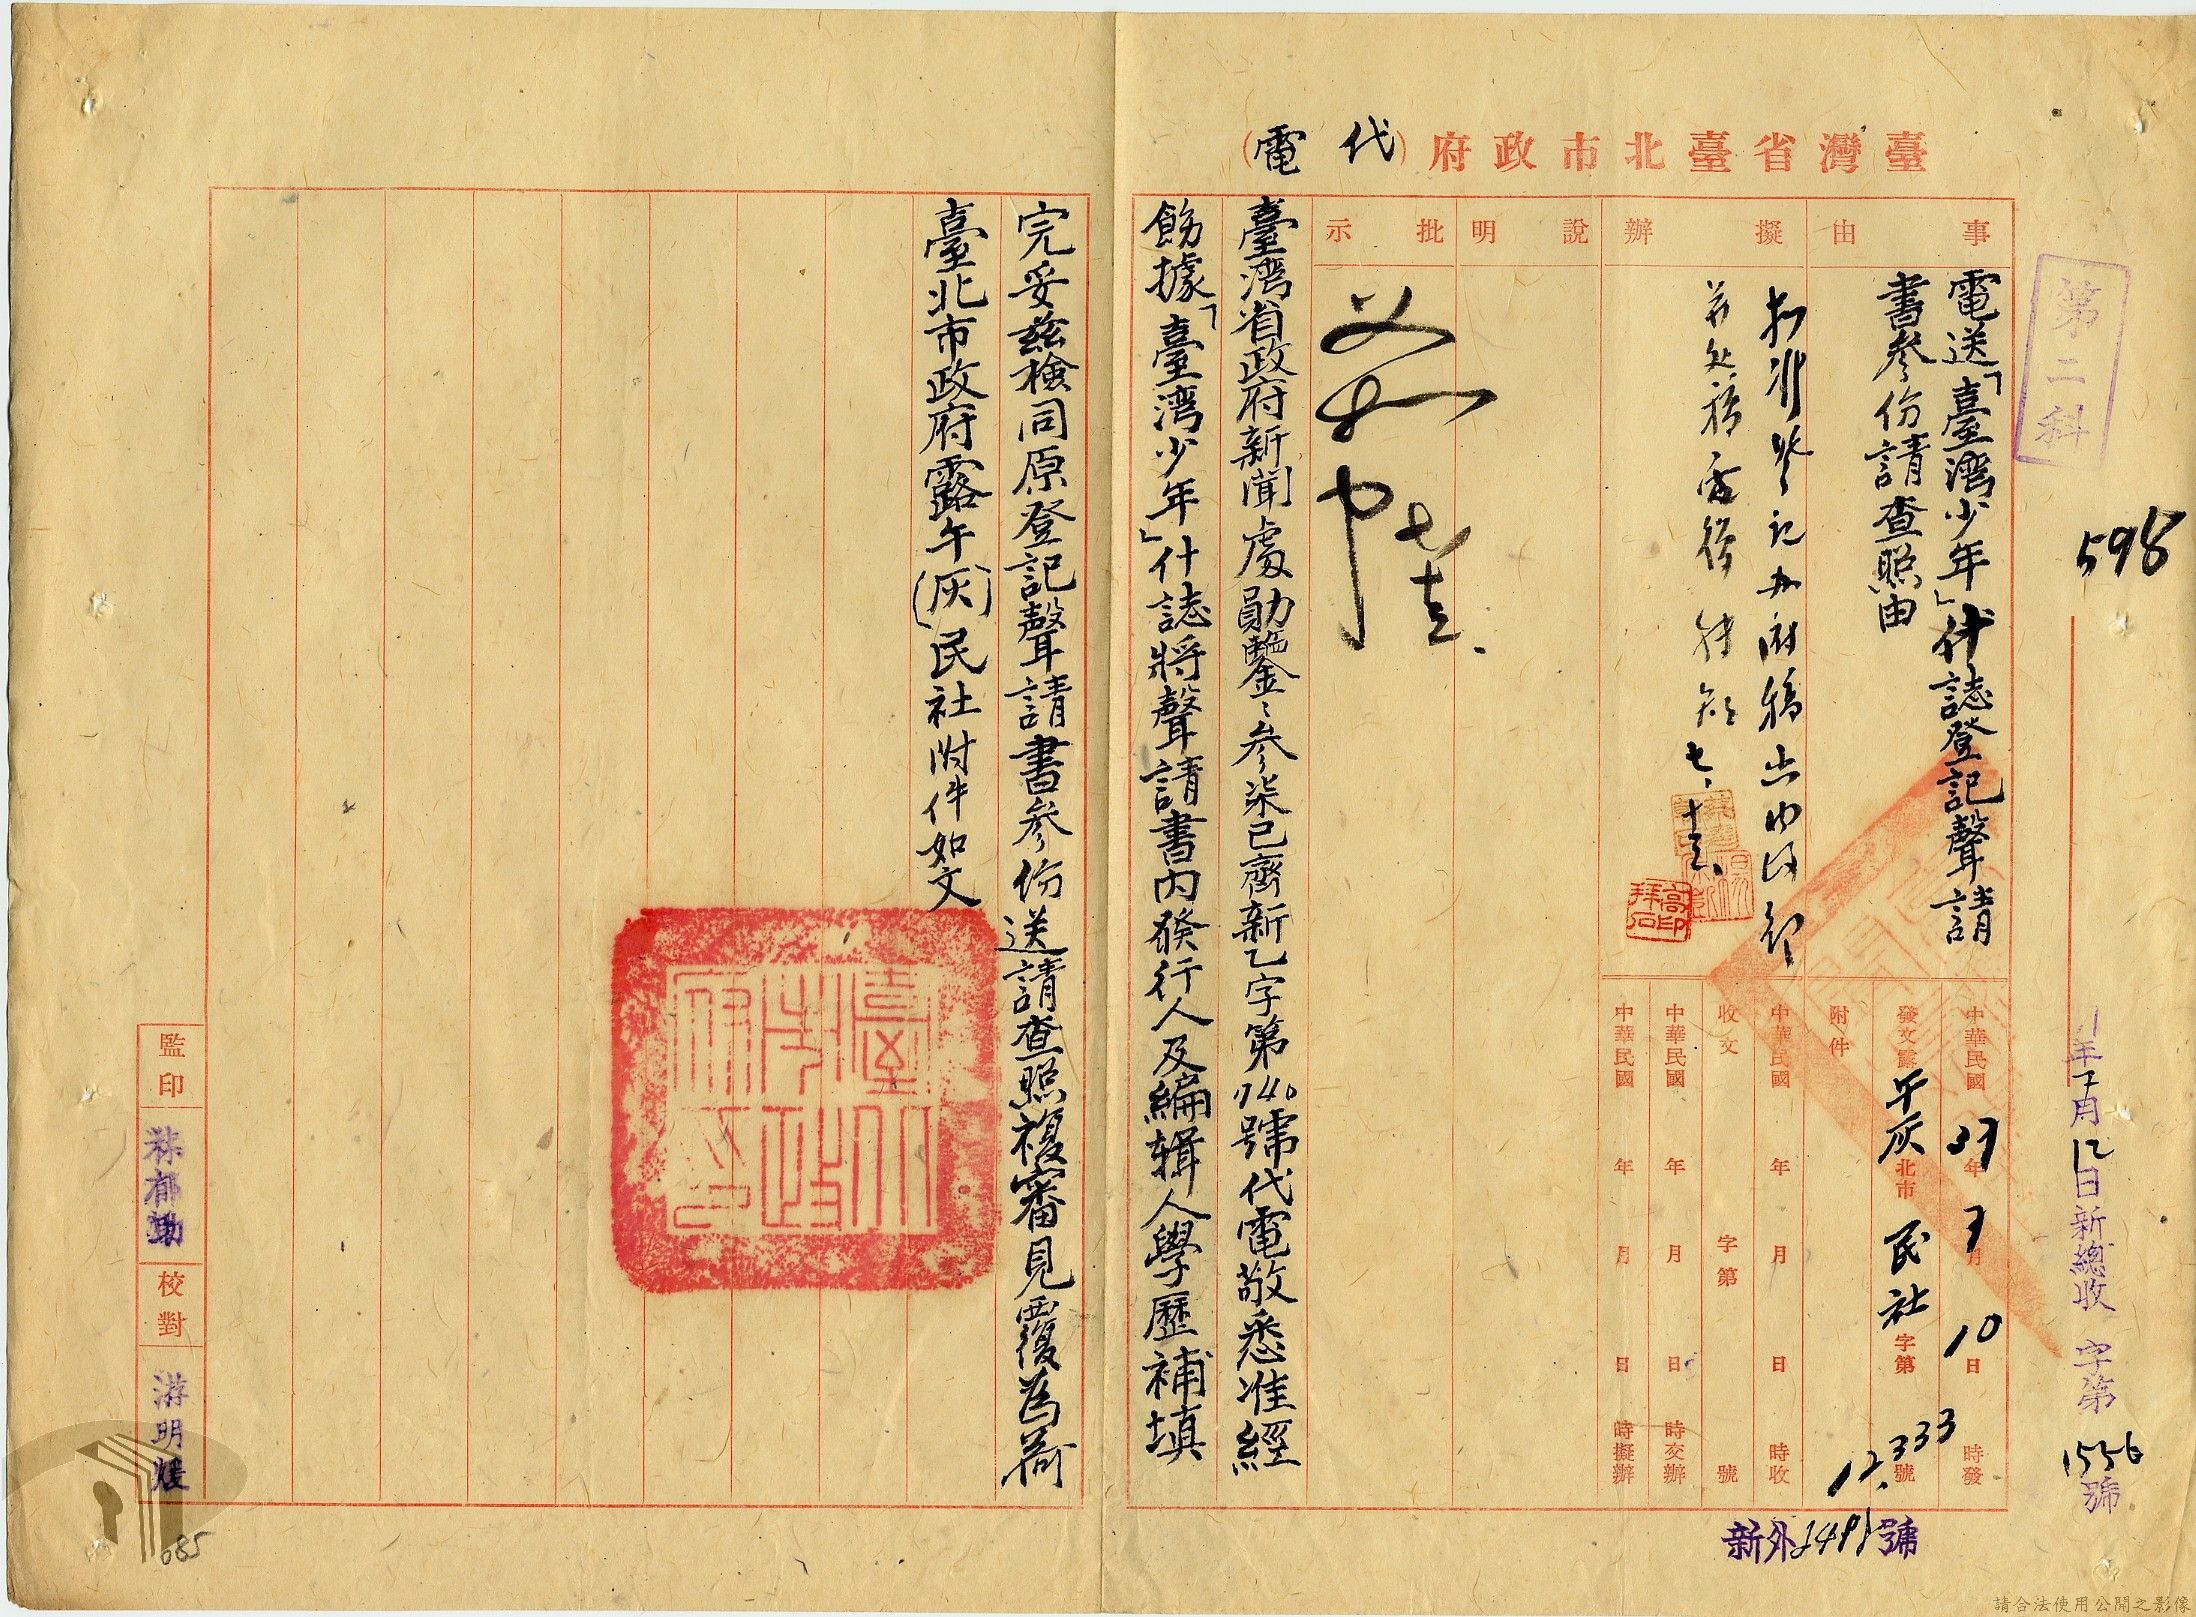 臺灣省臺北市政府（代電）
事由
擬辦
說明
批示
電送「臺灣少年」什誌登記聲請
書叁份請查照由
第二科
598
年7月12日新總收字第1556號
中華民國37年7月10日時發
發文露午灰北市民社字第12.333號
附件
中華民國年月日時收
收文字第號
中華民國年月日時交辦
中華民國年月日時擬辦
高印拜石
七、十三、
臺灣省政府新聞處勛鑒、叁柒巳齊新乙字第740號代電敬悉准經
飭據「臺灣少年」什誌將聲請書內發行人及編輯人學歷補填
完妥茲檢同原登記聲請書叁份送請查照複審見覆為荷
臺北市政府露午(灰)民社附件如文
臺北市政府印
監印
校對
游明煖
新外號
085
請合法使用公開之影像